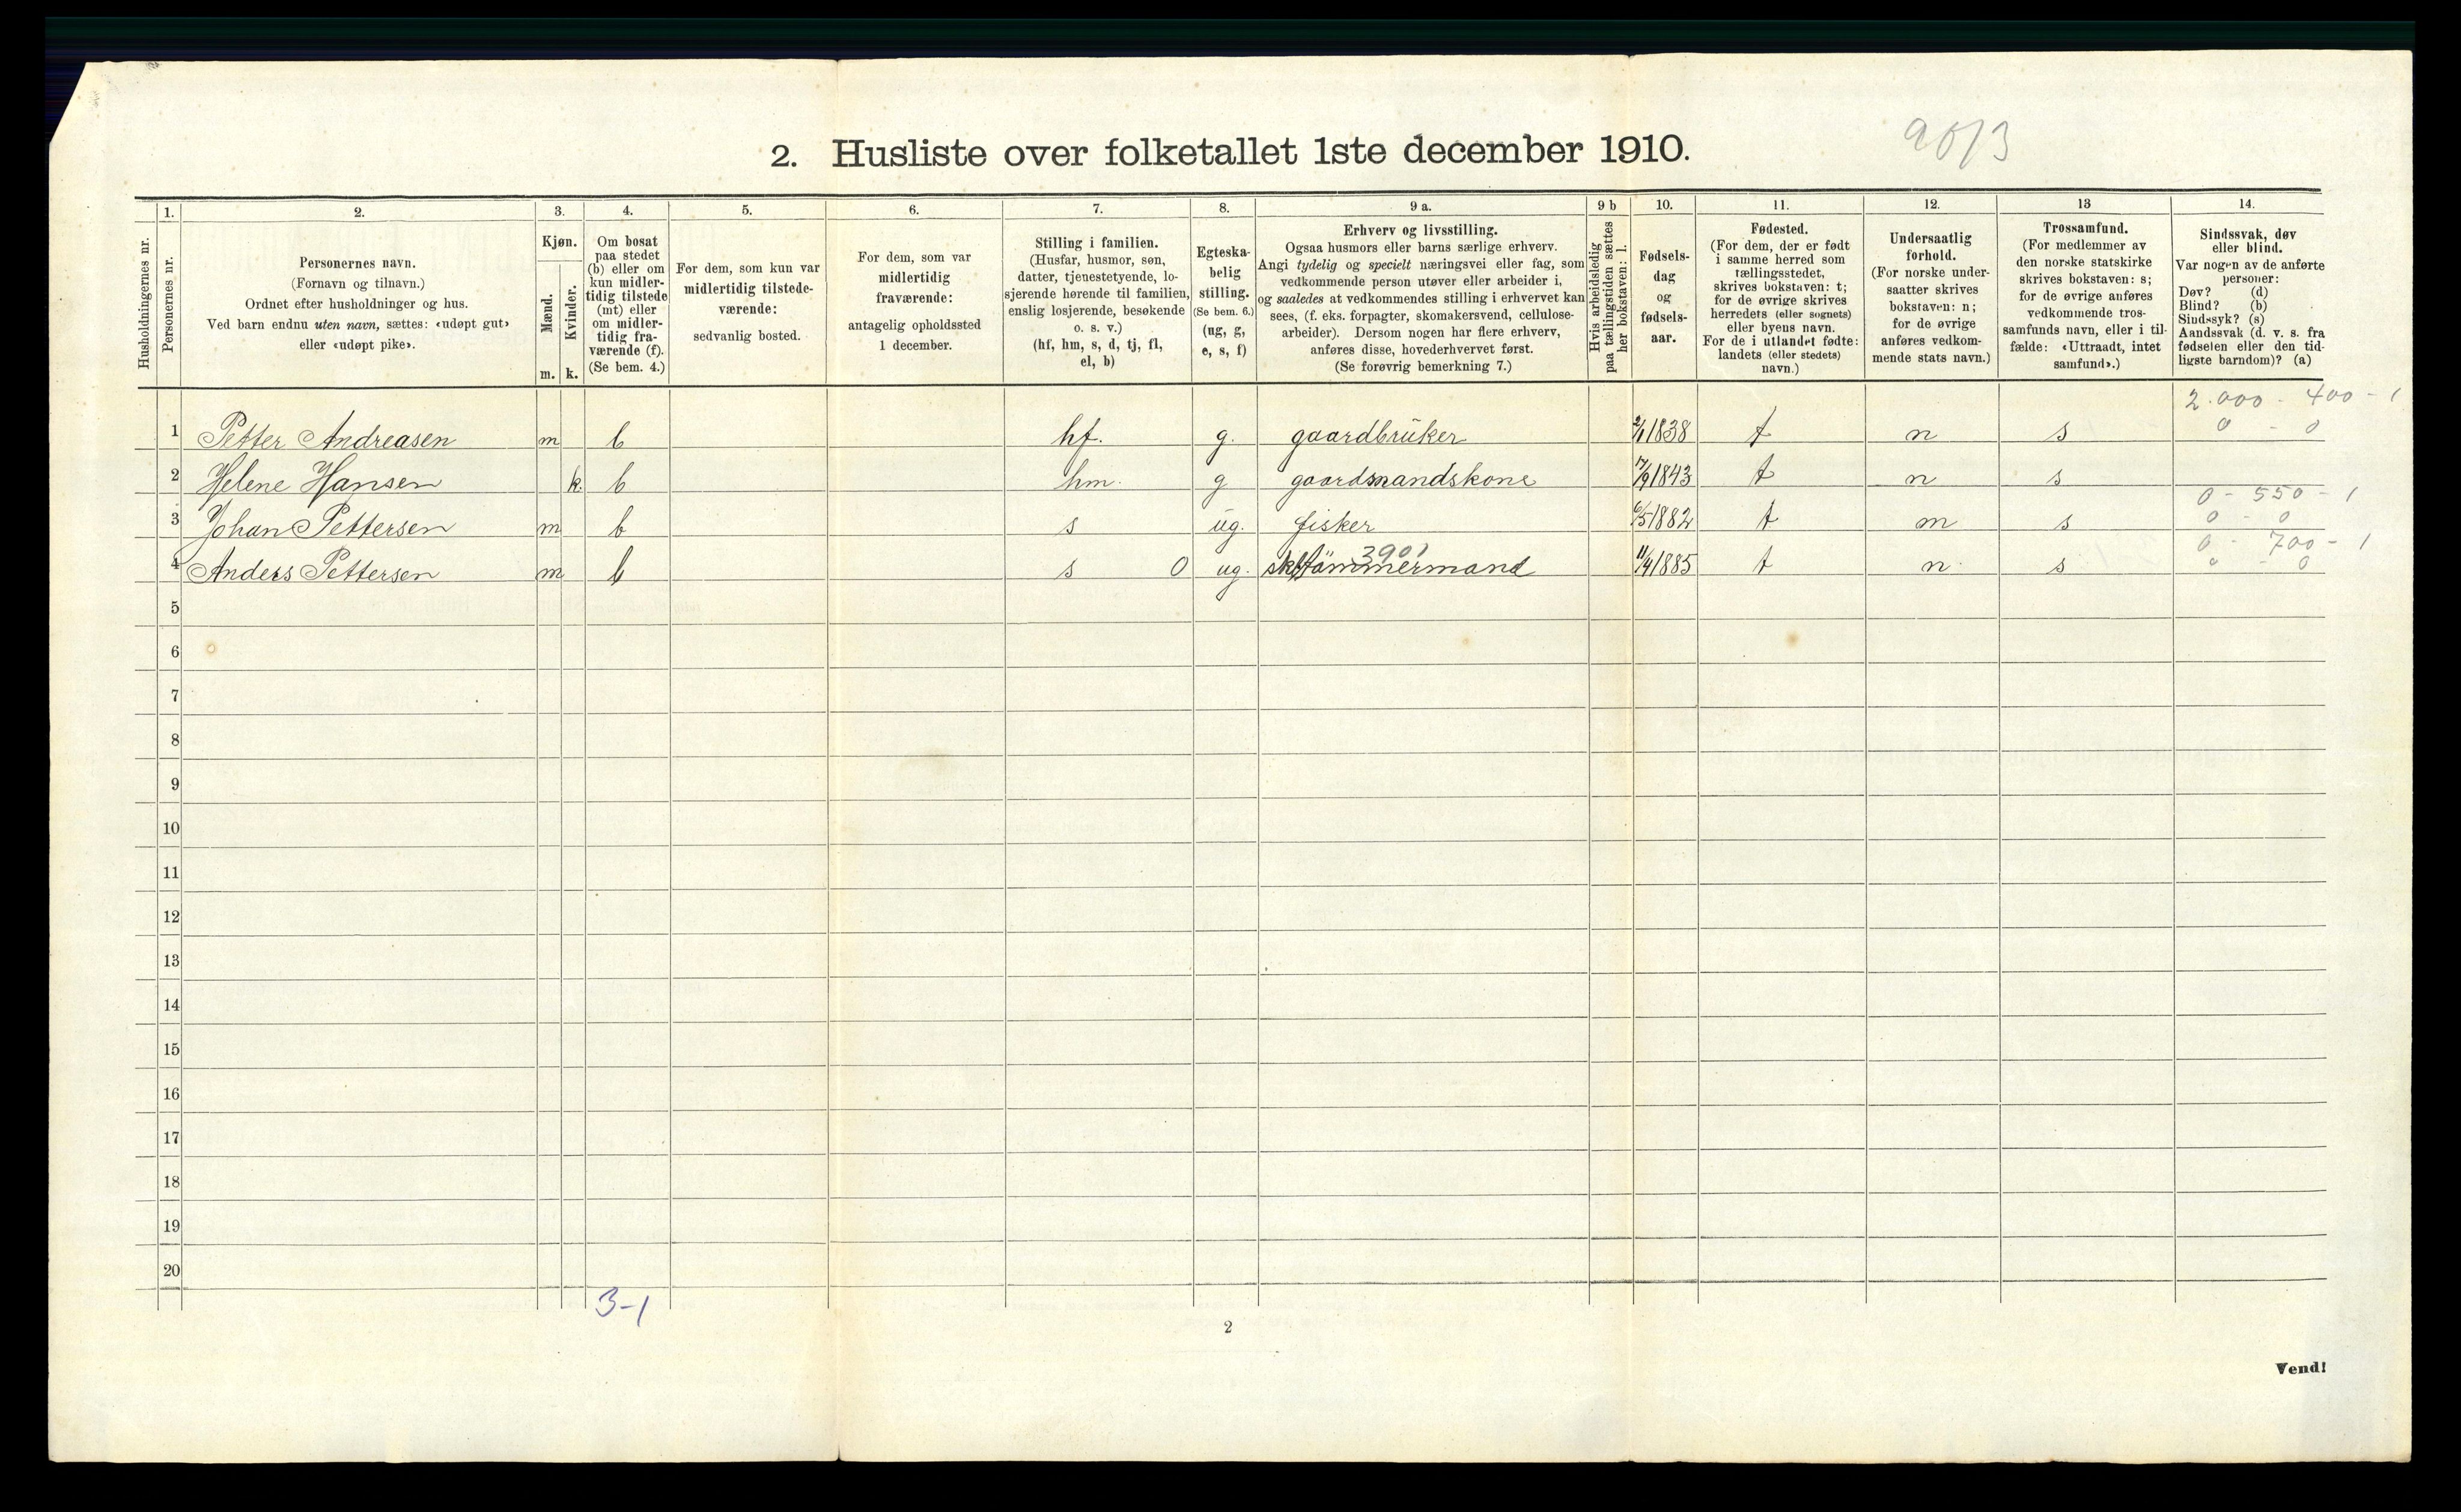 2. Husliste over folketallet 1ste december 1910.
Husholdningernes nr.
1.
Personernes nr.
2.
Personernes navn.
(Fornavn og tilnavn.)
Ordnet efter husholdninger og hus.
Ved barn endnu uten navn, sættes: «udøpt gut»
eller «udøpt pike».
3.
Kjøn.
Mænd.
Kvinder.
m. k.
4.
Om bosat
paa stedet
(b) eller om
kun midler-
tidig tilstede
(mt) eller
om midler-
tidig fra-
værende (f).
(Se bem. 4.)
5.
For dem, som kun var
midlertidig tilstede-
værende:
sedvanlig bosted.
6.
For dem, som var
midlertidig
fraværende:
antagelig opholdssted
1 december.
7.
Stilling i familien.
(Husfar, husmor, søn,
datter, tjenestetyende, lo-
sjerende hørende til familien,
enslig losjerende, besøkende
o. s. v.)
(hf, hm, s, d, tj, fl,
el, b)
8.
Egteska-
belig
stilling.
(Se bem. 6.)
(ug, g,
e, s, f)
9 a.
Erhverv og livsstilling.
Ogsaa husmors eller barns særlige erhverv.
Angi tydelig og specielt næringsvei eller fag, som
vedkommende person utøver eller arbeider i,
og saaledes at vedkommendes stilling i erhvervet kan
sees, (f. eks. forpagter, skomakersvend, cellulose-
arbeider). Dersom nogen har flere erhverv,
anføres disse, hovederhvervet først.
(Se forøvrig bemerkning 7.)
9 b
Hvis arbeidsledig
paa tællingstiden sættes
her bokstaven: l.
10.
Fødsels-
dag
og
fødsels-
aar.
11.
Fødested.
(For dem, der er født
i samme herred som
tællingsstedet,
skrives bokstaven: t;
for de øvrige skrives
herredets (eller sognets)
eller byens navn.
For de i utlandet fødte:
landets (eller stedets)
navn.)
12.
Undersaatlig
forhold.
(For norske under-
saatter skrives
bokstaven: n;
for de øvrige
anføres vedkom-
mende stats navn.)
13
Trossamfund.
(For medlemmer av
den norske statskirke
skrives bokstaven: s;
for de øvrige anføres
vedkommende tros-
samfunds navn, eller i til-
fælde: «Uttraadt, intet
samfund».)
14.
Sindssvak, døv
eller blind.
Var nogen av de anførte
personer:
Døv? (d)
Blind? (b)
Sindssyk? (s)
Aandssvak (d. v. s. fra
fødselen eller den tid-
ligste barndom)? (a)
2.000 - 400 - 1
1 Petter Andreasen m b hf. g. gaardbrüker 2/1 1838 t n s 0 - 0
2 Helene Hansen k. b hm. g gaardsmandskone 17/9 1843 t n s
0 - 550 - 1
3 Johan Pettersen m b s üg. fisker 6/5 1882 t n s 0 - 0
3901
0 - 700 - 1
4 Anders Pettersen m b s 0 ug. tömmermand 11/4 1885 t n s 0 - 0
5
6
7
8
9
10
11
12
13
14
15
16
17
18
19
20
3-1
2
Vend!